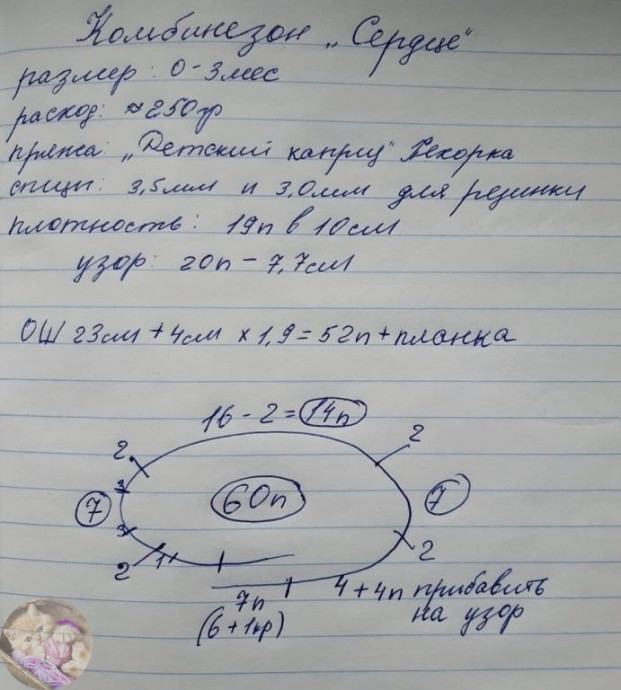 Комбинезон „Сердце"
размер: 0-3мес
расход: ≈250гр
пряжа: „Детский каприз" Пехорка
спицы: 3,5мм и 3,0мм для резинки
плотность: 19п в 10см
узор: 20п - 7,7см
ОШ 23см + 4см × 1,9 = 52п + планка
16 - 2 = 14п
2 2
3
7 60п 7
3
2 1 2
7п 4 + 4п прибавить
(6 + 1кр) на узор